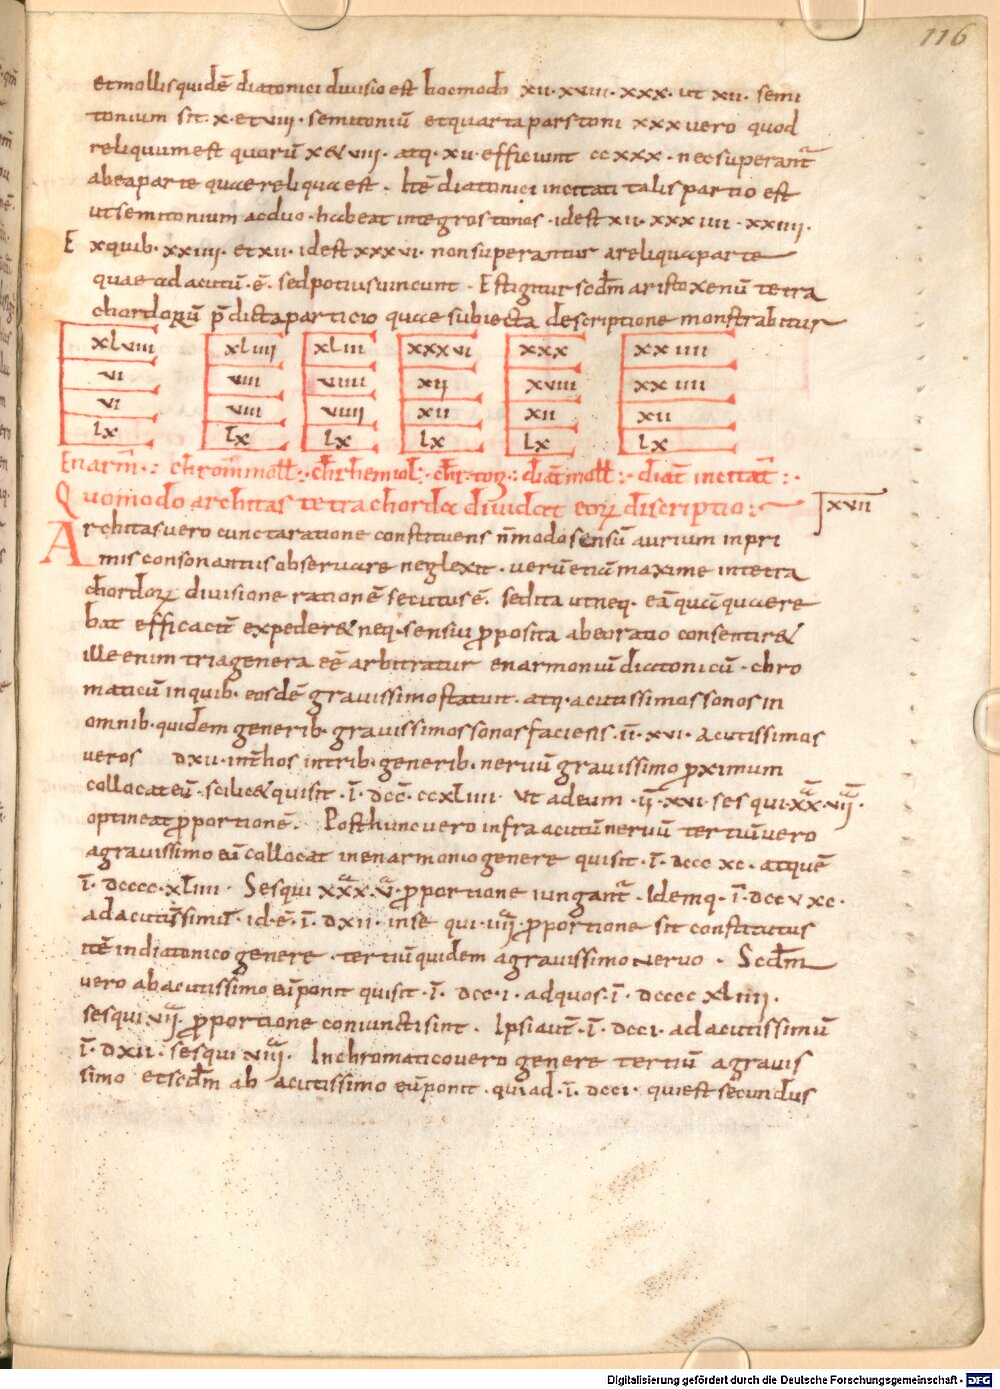 116
et mollis quidē diatonici diuisio est hocmodo xii· xviii· xxx· ut xii· semi
tonium sit· x· et viii· semitoniū et quarta pars toni xxx vero quod
reliquum est quorū x& viii· atq· xii· efficiunt ccxxx· nec superant
ab ea parte quae reliqua est· Itē diatonici incitati talis partio est
ut semitonium ac duo· habeat integros tonos· id est xii· xxxiiii· xxiiii·
Ex quib· xxiiii· et xii· id est xxxvi· non superantur a reliqua parte
quae ad acutū· ē· sed potius uincunt· Est igitur scdm aristoxenū tetra
chordorū p̄dicta particio quae subiecta descriptione monstrabitur
xLviii xLiiii xLiii xxxvi xxx xxiiii
vi viii viiii xii xviii xxiiii
vi viii viiii xii xii xii
Lx Lx Lx Lx Lx Lx
Enarm̄·: chrom̄ moll·: chr hemiol·: chr ton·: diat̄ moll·: diat̄ incitat̄:·
Quomodo architas tetrachorda diuidat eorꝝ discriptio: xxvii
Architas vero cuncta ratione constituens n̄ modo sensū aurium in pri
mis consonantiis obseruare neglexit· verū etiā maxime in tetra
chordorꝝ diuisione rationē secutus ē· sed ita ut neq· eā quā quaere
bat efficaciē expedere& neq· sensui p̄posita ab eo ratio consentire&
ille enim tria genera eē arbitratur enarmonium diatonicū· chro
maticū in quib· eosdē grauissimo statuit· atq· acutissimos sonos in
omnib· quidem generib· grauissimos sonos faciens· īī· xvi· acutissimos
veros dxii· int̄ hos in trib· generib· neruū grauissimo p̄ximum
collocat eū· scilic& qui sit· ī· dcc̄· ccxLiiii· Ut ad eum· īī· xvi· sesqui·xx·vii·
optineat p̄portionē· Post hunc vero infra acutū neruū tertiū vero
a grauissimo eū collocat in enarmonio genere qui sit· ī· dccc xc· atquē
ī· dcccc·xLiiii· Sesqui xxx·v· p̄portione iungant̄· Idemq· ī· dccv xc·
ad acutissimū· id· ē· ī· dxii· in se qui· iiii p̄portione sit constitutus
itē in diatonico genere· tertiū quidem a grauissimo neruo· Scdm
vero ab acutissimo eū ponit qui sit· ī· dcc·i· ad quos· ī· dcccc xLiiii·
sesqui vii· p̄portione coniuncti sint· Ipsi aut̄· ī· dcci· ad acutissimū
ī· dxii· sesqui viii· In chromatico vero genere tertiū a grauis
simo et scdm ab acutissimo eū ponit· qui ad· ī· dcci· qui est secundus
Digitalisierung gefördert durch die Deutsche Forschungsgemeinschaft - DFG